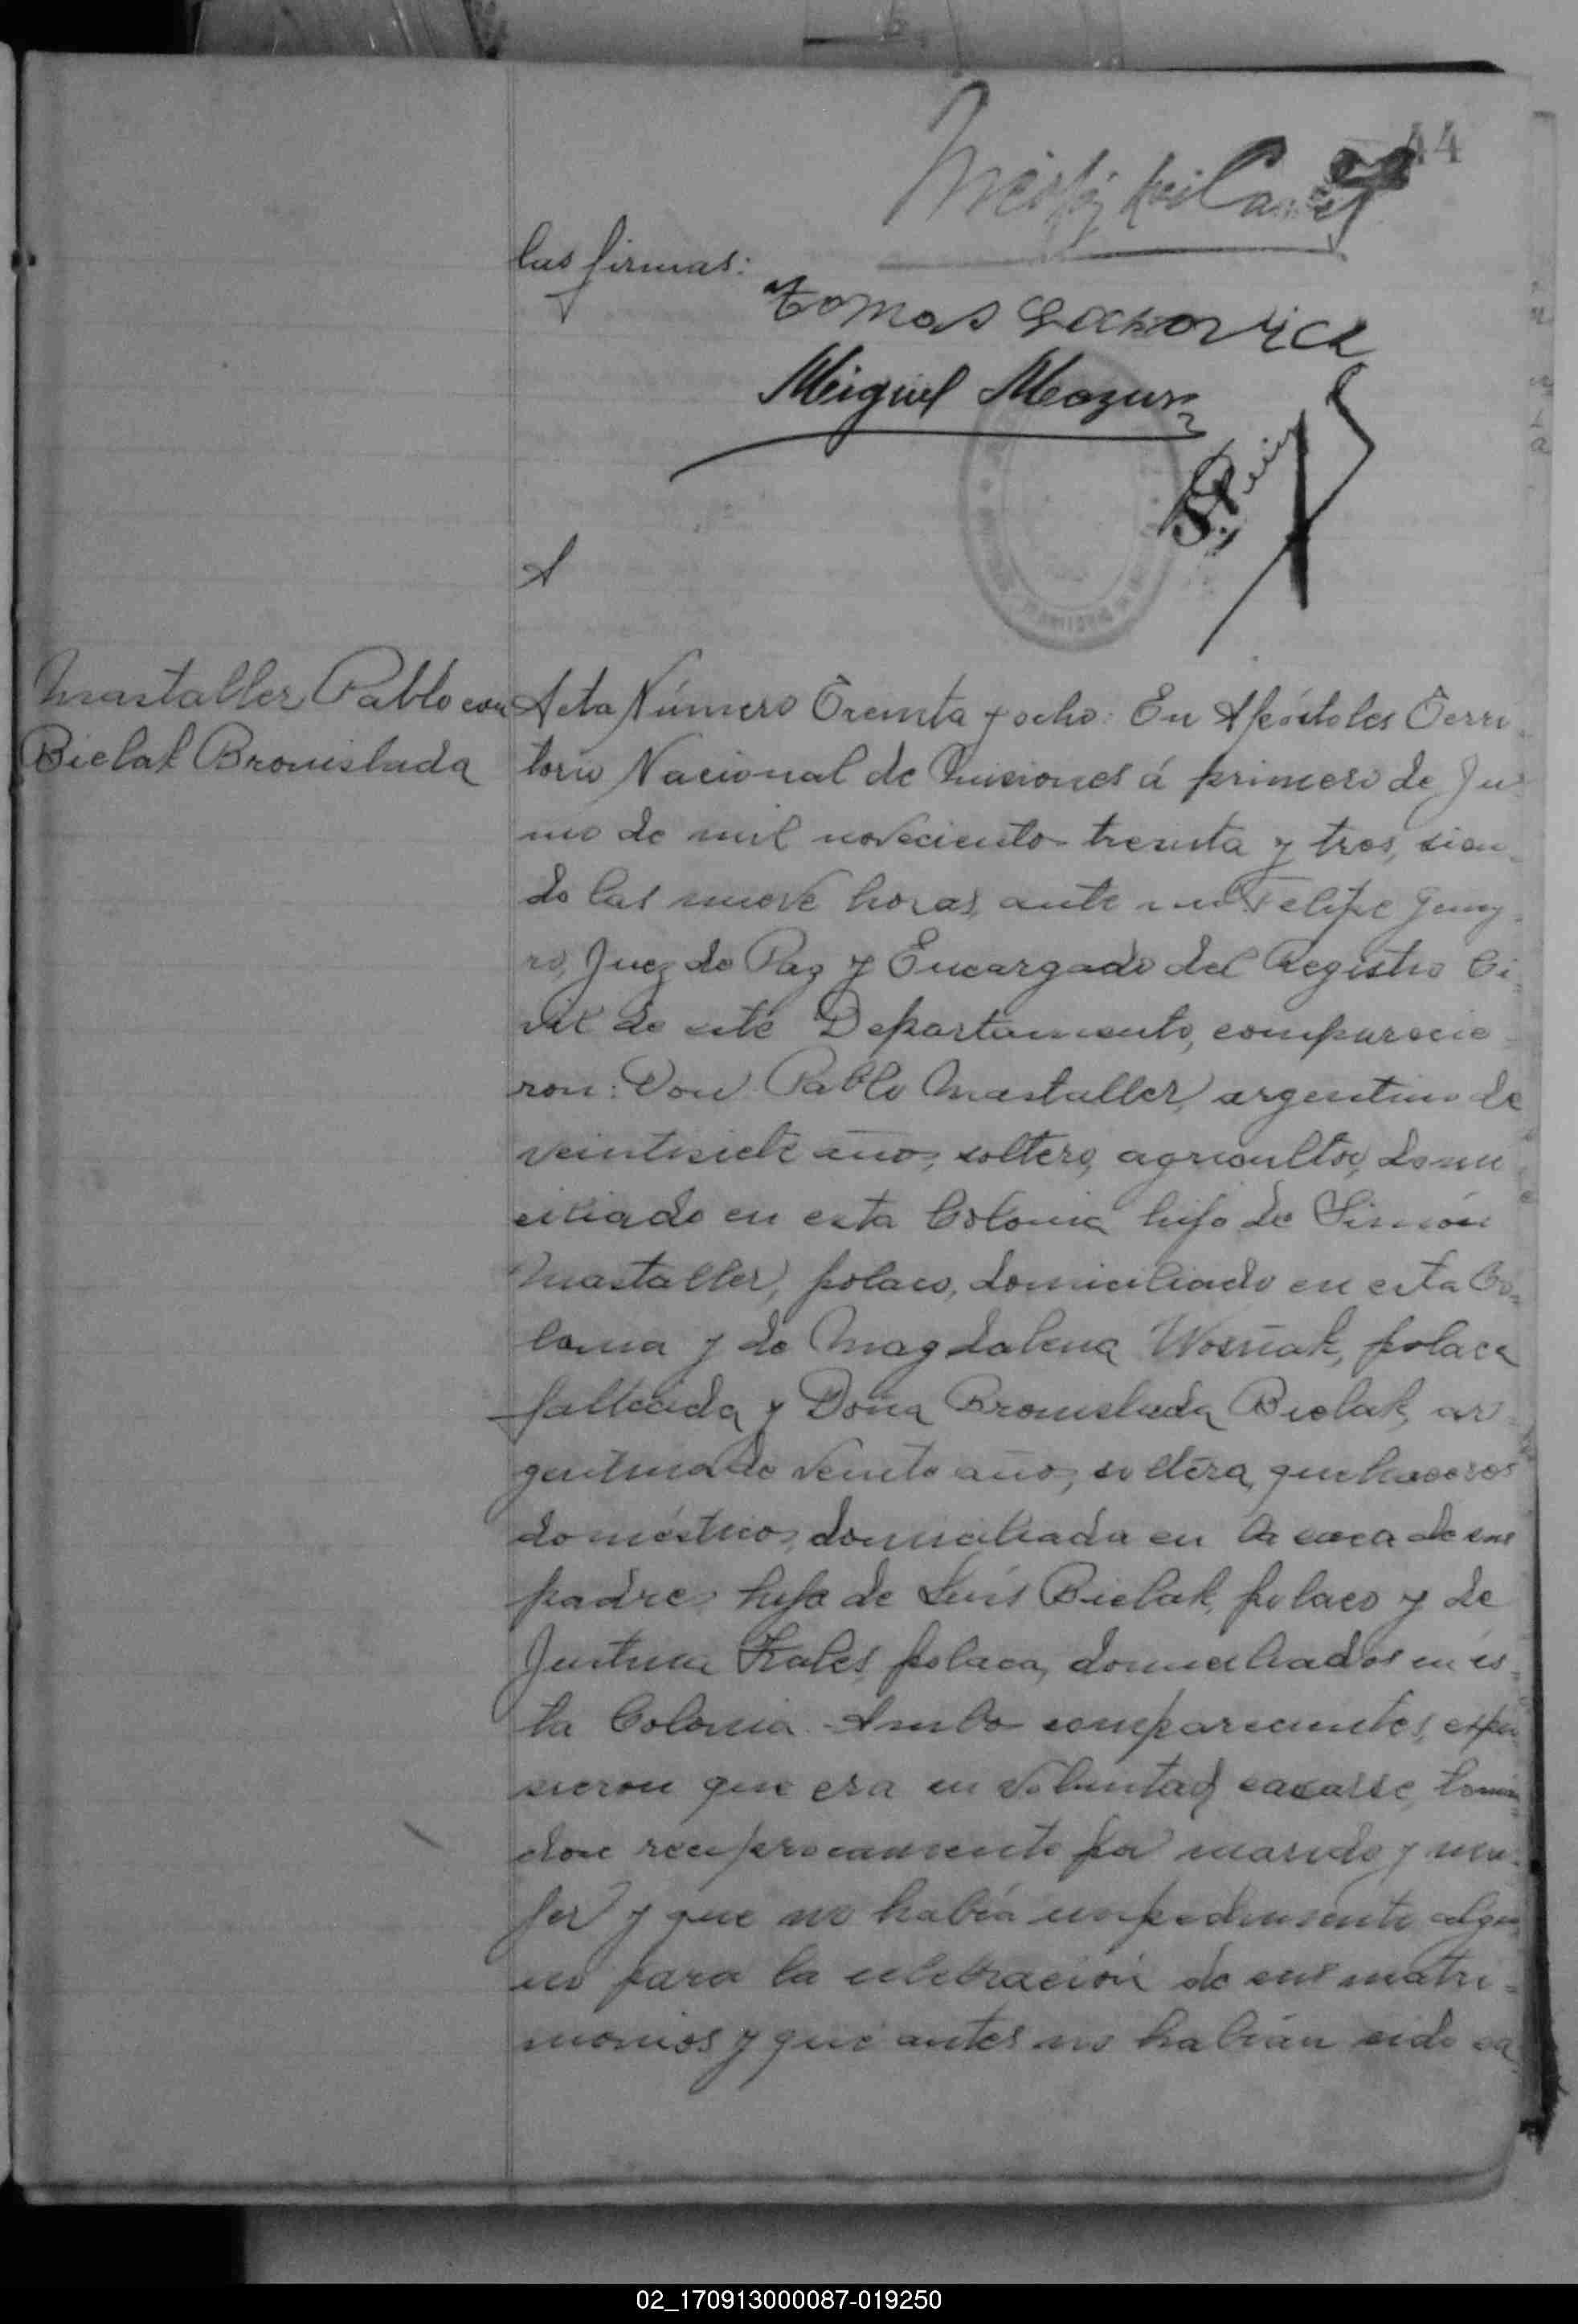 44
las firmas:
Tomas
Miguel Mazur
Mastaller Pablo con
Bielak Bronislada
Acta Número Treinta y ocho: En Apóstoles Terri-
torio Nacional de Misiones á primero de Ju-
nio de mil novecientos treinta y tres, sien-
do las nueve horas, ante mi Felipe
ro, Juez de Paz y Encargado del Registro Ci-
vil de este Departamento, comparecie-
ron: Don Pablo Mastaller, argentino de
veintisiete años, soltero, agricultor, domi
ciliado en esta Colonia hijo de Simón
Mastaller, polaco, domiciliado en esta Co-
lonia y de Magdalena Wosniak, polaca
fallecida y Doña Bronislada Bielak, ar-
gentina de veinte años, soltera, quehaceres
domésticos, domiciliada en la casa de sus
padres hija de Luís Bielak, polaco y de
Justina polaca, domiciliados en es-
ta Colonia. Ambos comparecientes, expu
sieron que era su voluntad casarse, toman-
dose reciprocamente por marido y mu-
jer y que no había impedimento algu-
no para la celebración de sus matri-
monios y que antes no habían sido ca
02_170913000087-019250